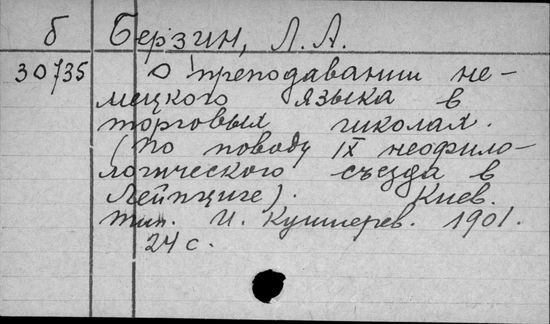 б Берзин, Л. А.
30735 О преподавании не-
мецкого языка в
торговых школах.
(по поводу IX неофило-
логического съезда в
Лейпциге). Киев.
тип. И. Кушнерев. 1901.
24 с.